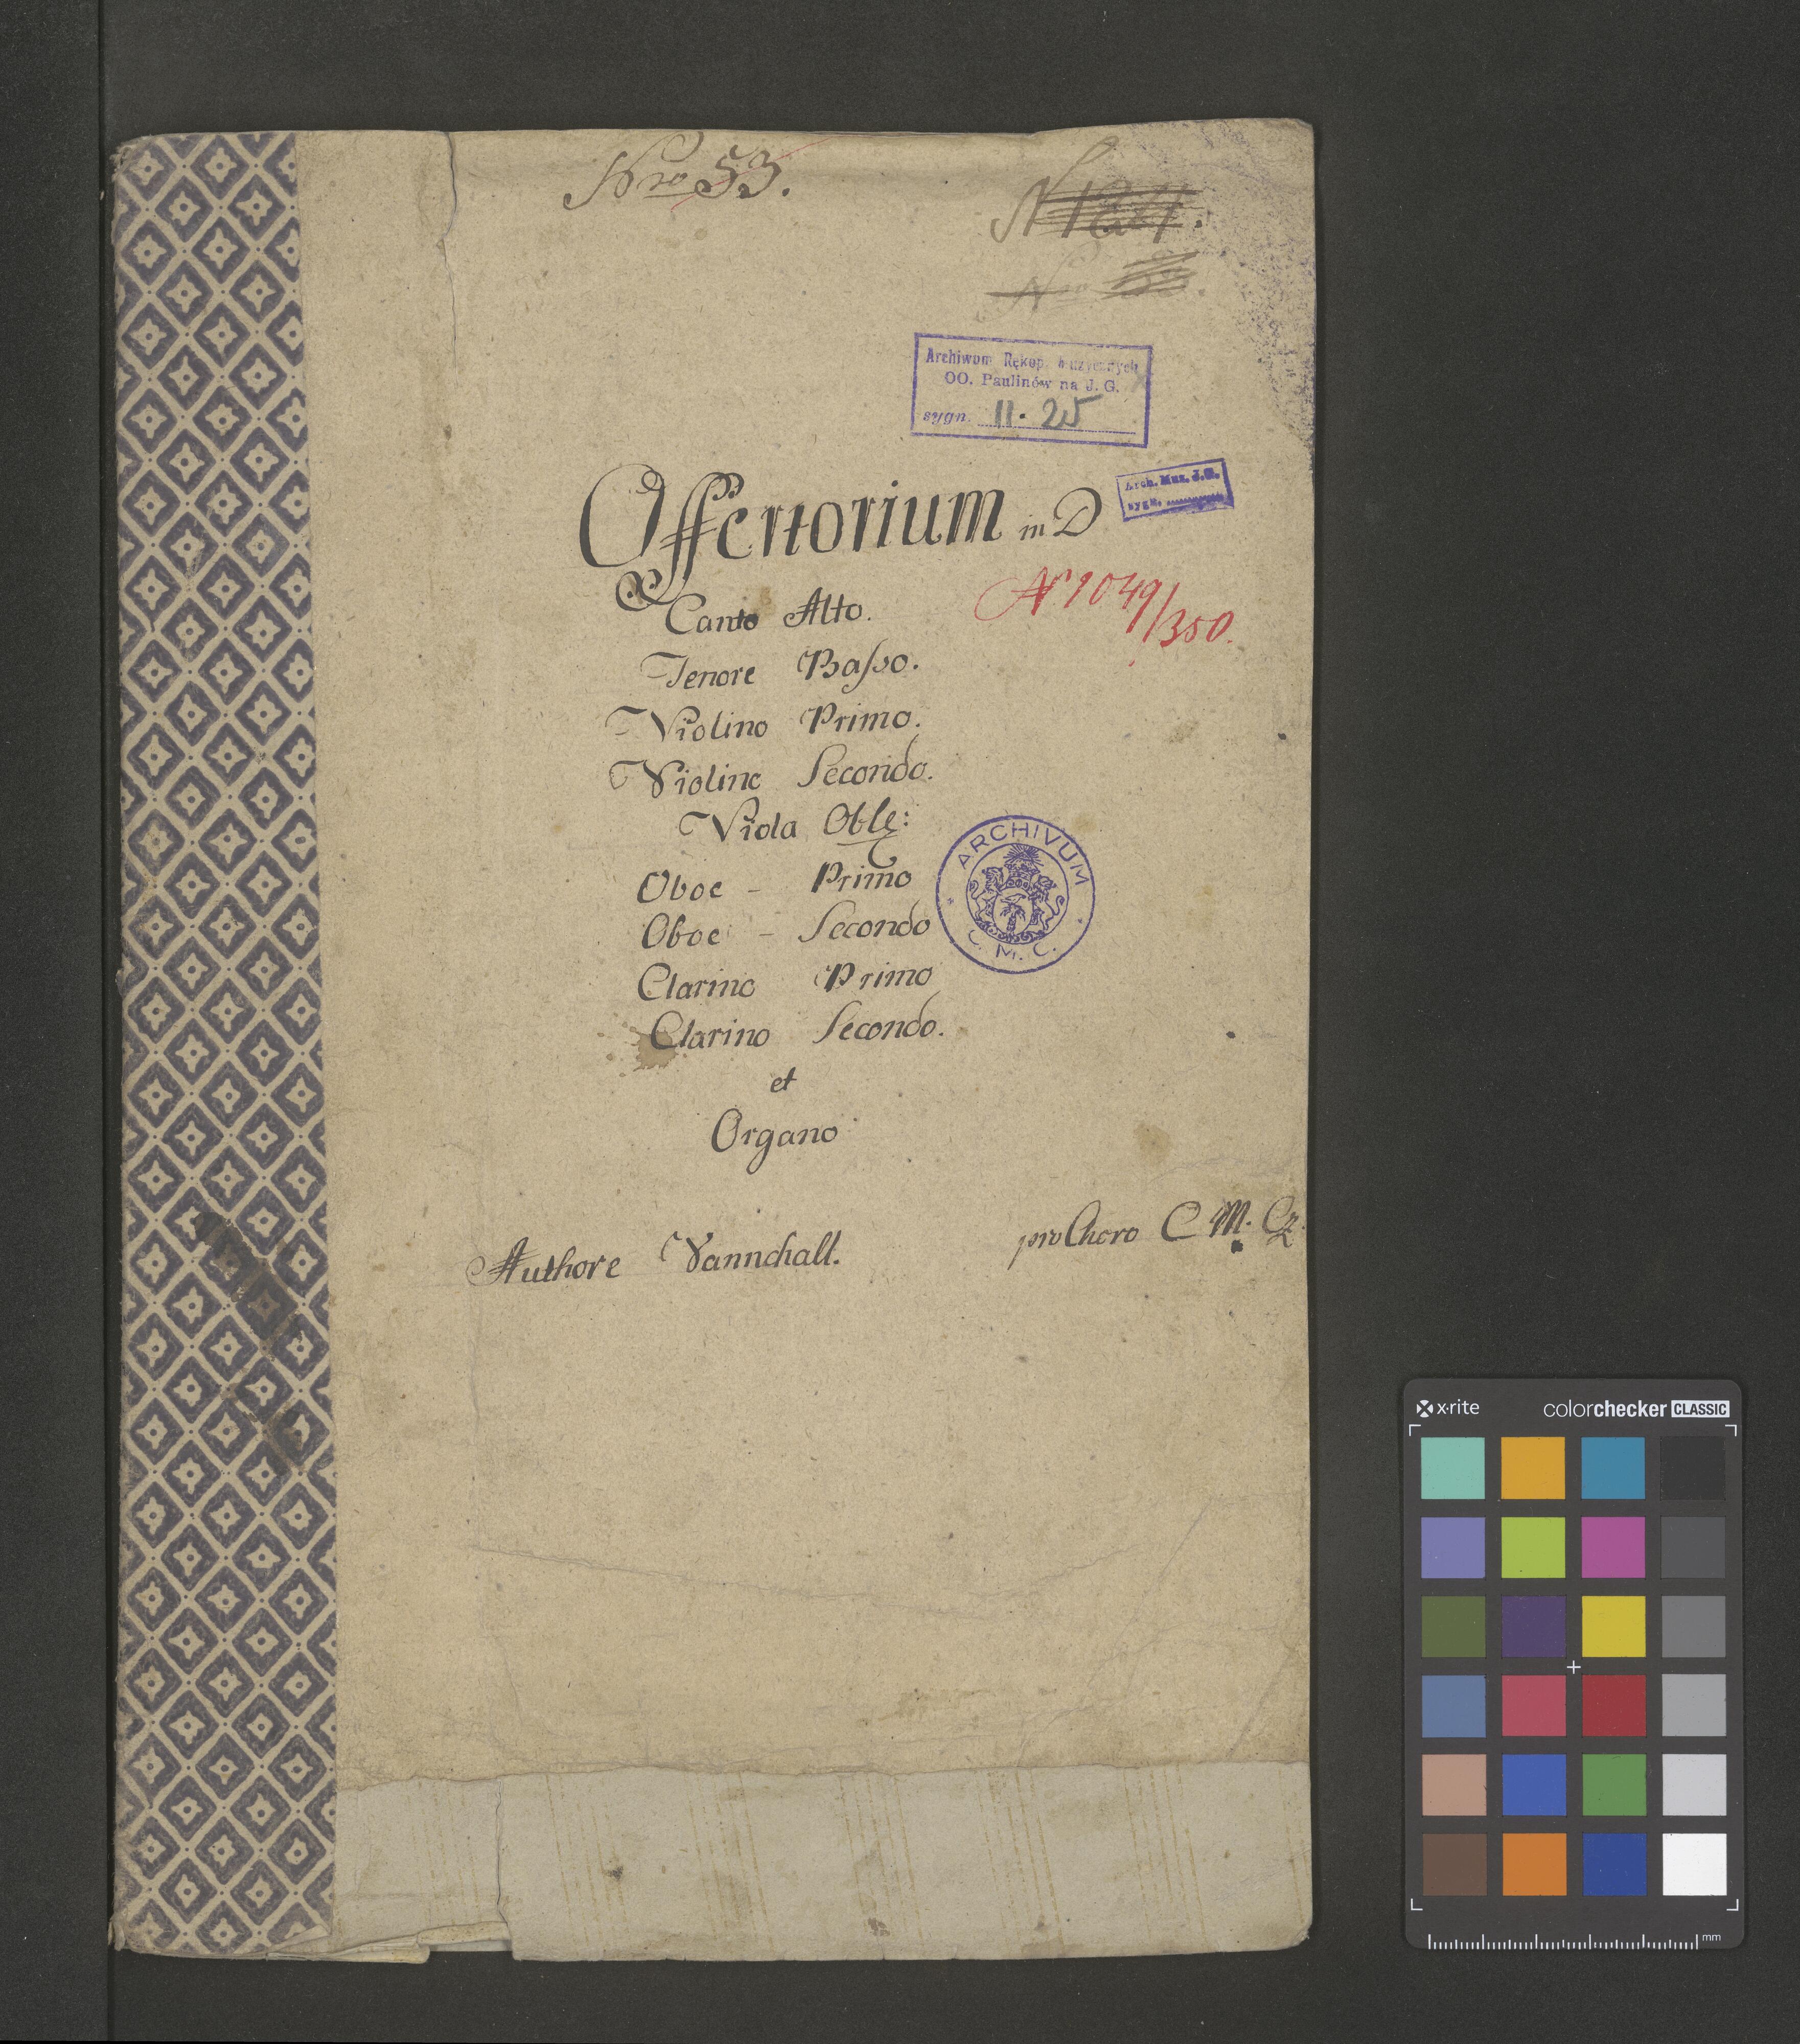 Nro 53.
Archiwum Rękop. Muzycznych
OO. Paulinów na J. G.
sygn. II. 25
Offertorium in D
Arch. Muz. J.G.
sygn.
Nº 1049/350.
Canto Alto.
Tenore Baſso.
Violino Primo.
Violino Secondo.
Viola Oblg:
Oboe - Primo
Oboe - Secondo
ARCHIVUM
C. M. C.
Clarino Primo
Clarino Secondo.
et
Organo
Authore Vannchall.
pro Choro C M. Cz.
x·rite
colorchecker CLASSIC
mm